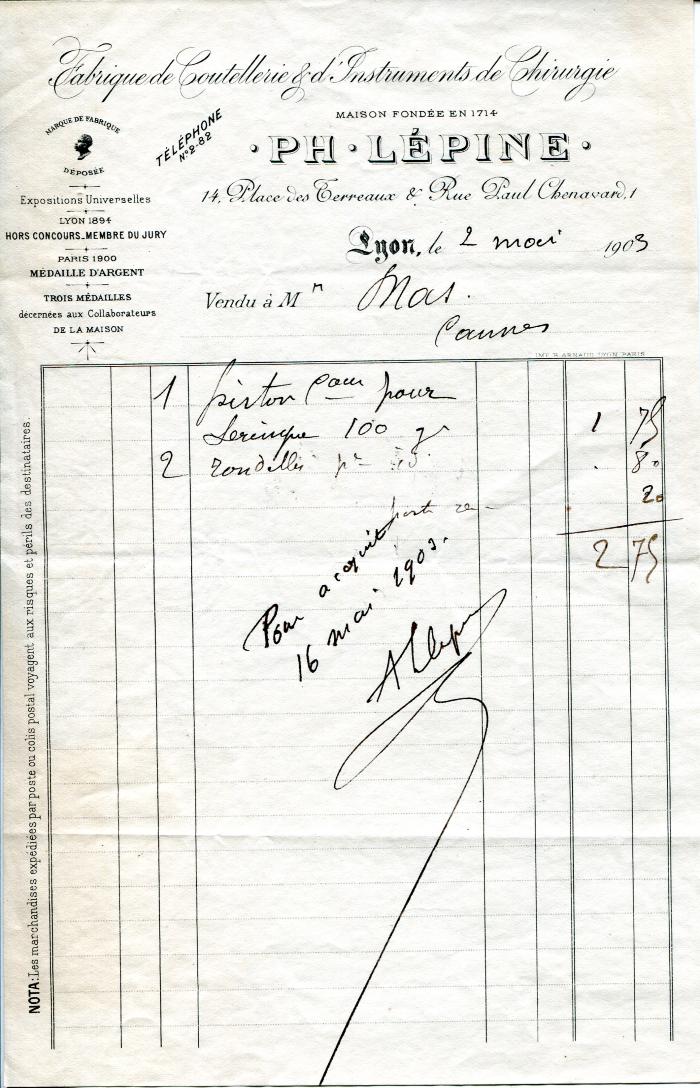 Fabrique de Coutellerie & d'Instruments de Chirurgie
MARQUE DE FABRIQUE
DÉPOSÉE
TÉLÉPHONE
N° 2-82
MAISON FONDÉE EN 1714
· PH · LÉPINE ·
14, Place des Terreaux & Rue Paul Chenavard, 1
Expositions Universelles
LYON 1894
HORS CONCOURS_MEMBRE DU JURY
PARIS 1900
MÉDAILLE D'ARGENT
TROIS MÉDAILLES
décernées aux Collaborateurs
DE LA MAISON
Lyon, le 2 mai 1903
Vendu à M r Mas.
Cannes
IMP. B. ARNAUD LYON PARIS
1 piston pour
Seringue 100 gr 1 75
2 rondelles 80
20
2 75
Pour acquit
16 mai 1903.
NOTA: Les marchandises expédiées par poste ou colis postal voyagent aux risques et périls des destinataires.